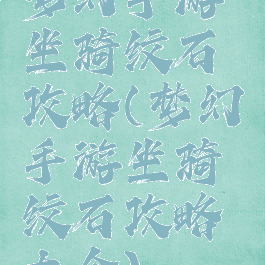 梦幻手游
坐骑绞石
攻略(梦幻
手游坐骑
绞石攻略
大全)